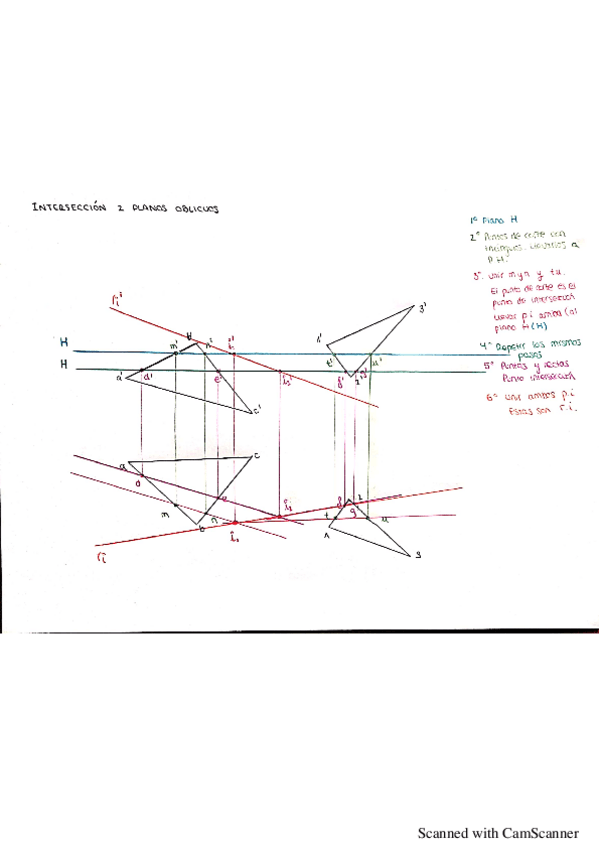 INTERSECCIÓN 2 PLANOS OBLICUOS
1º Plano H
2º Puntos de corte con
triángulos
P.H.
3º. Unir m y n y tu.
El punto de corte es el
punto de intersección
Llevar p.i arriba (a)
plano H (H)
4º Repetir los mismos
pasos
5º Puntas y rectas
Punto intersección
6º Unir ambos p.i
Estas son r.i.
ri'
H
H
m'
b'
n'
i1'
a'
d'
e'
i2'
c'
1'
3'
t'
u'
f'
2'
g'
a
c
d
e
m
n
b
i2
i1
ri
f
2
t
g
u
1
3
Scanned with CamScanner